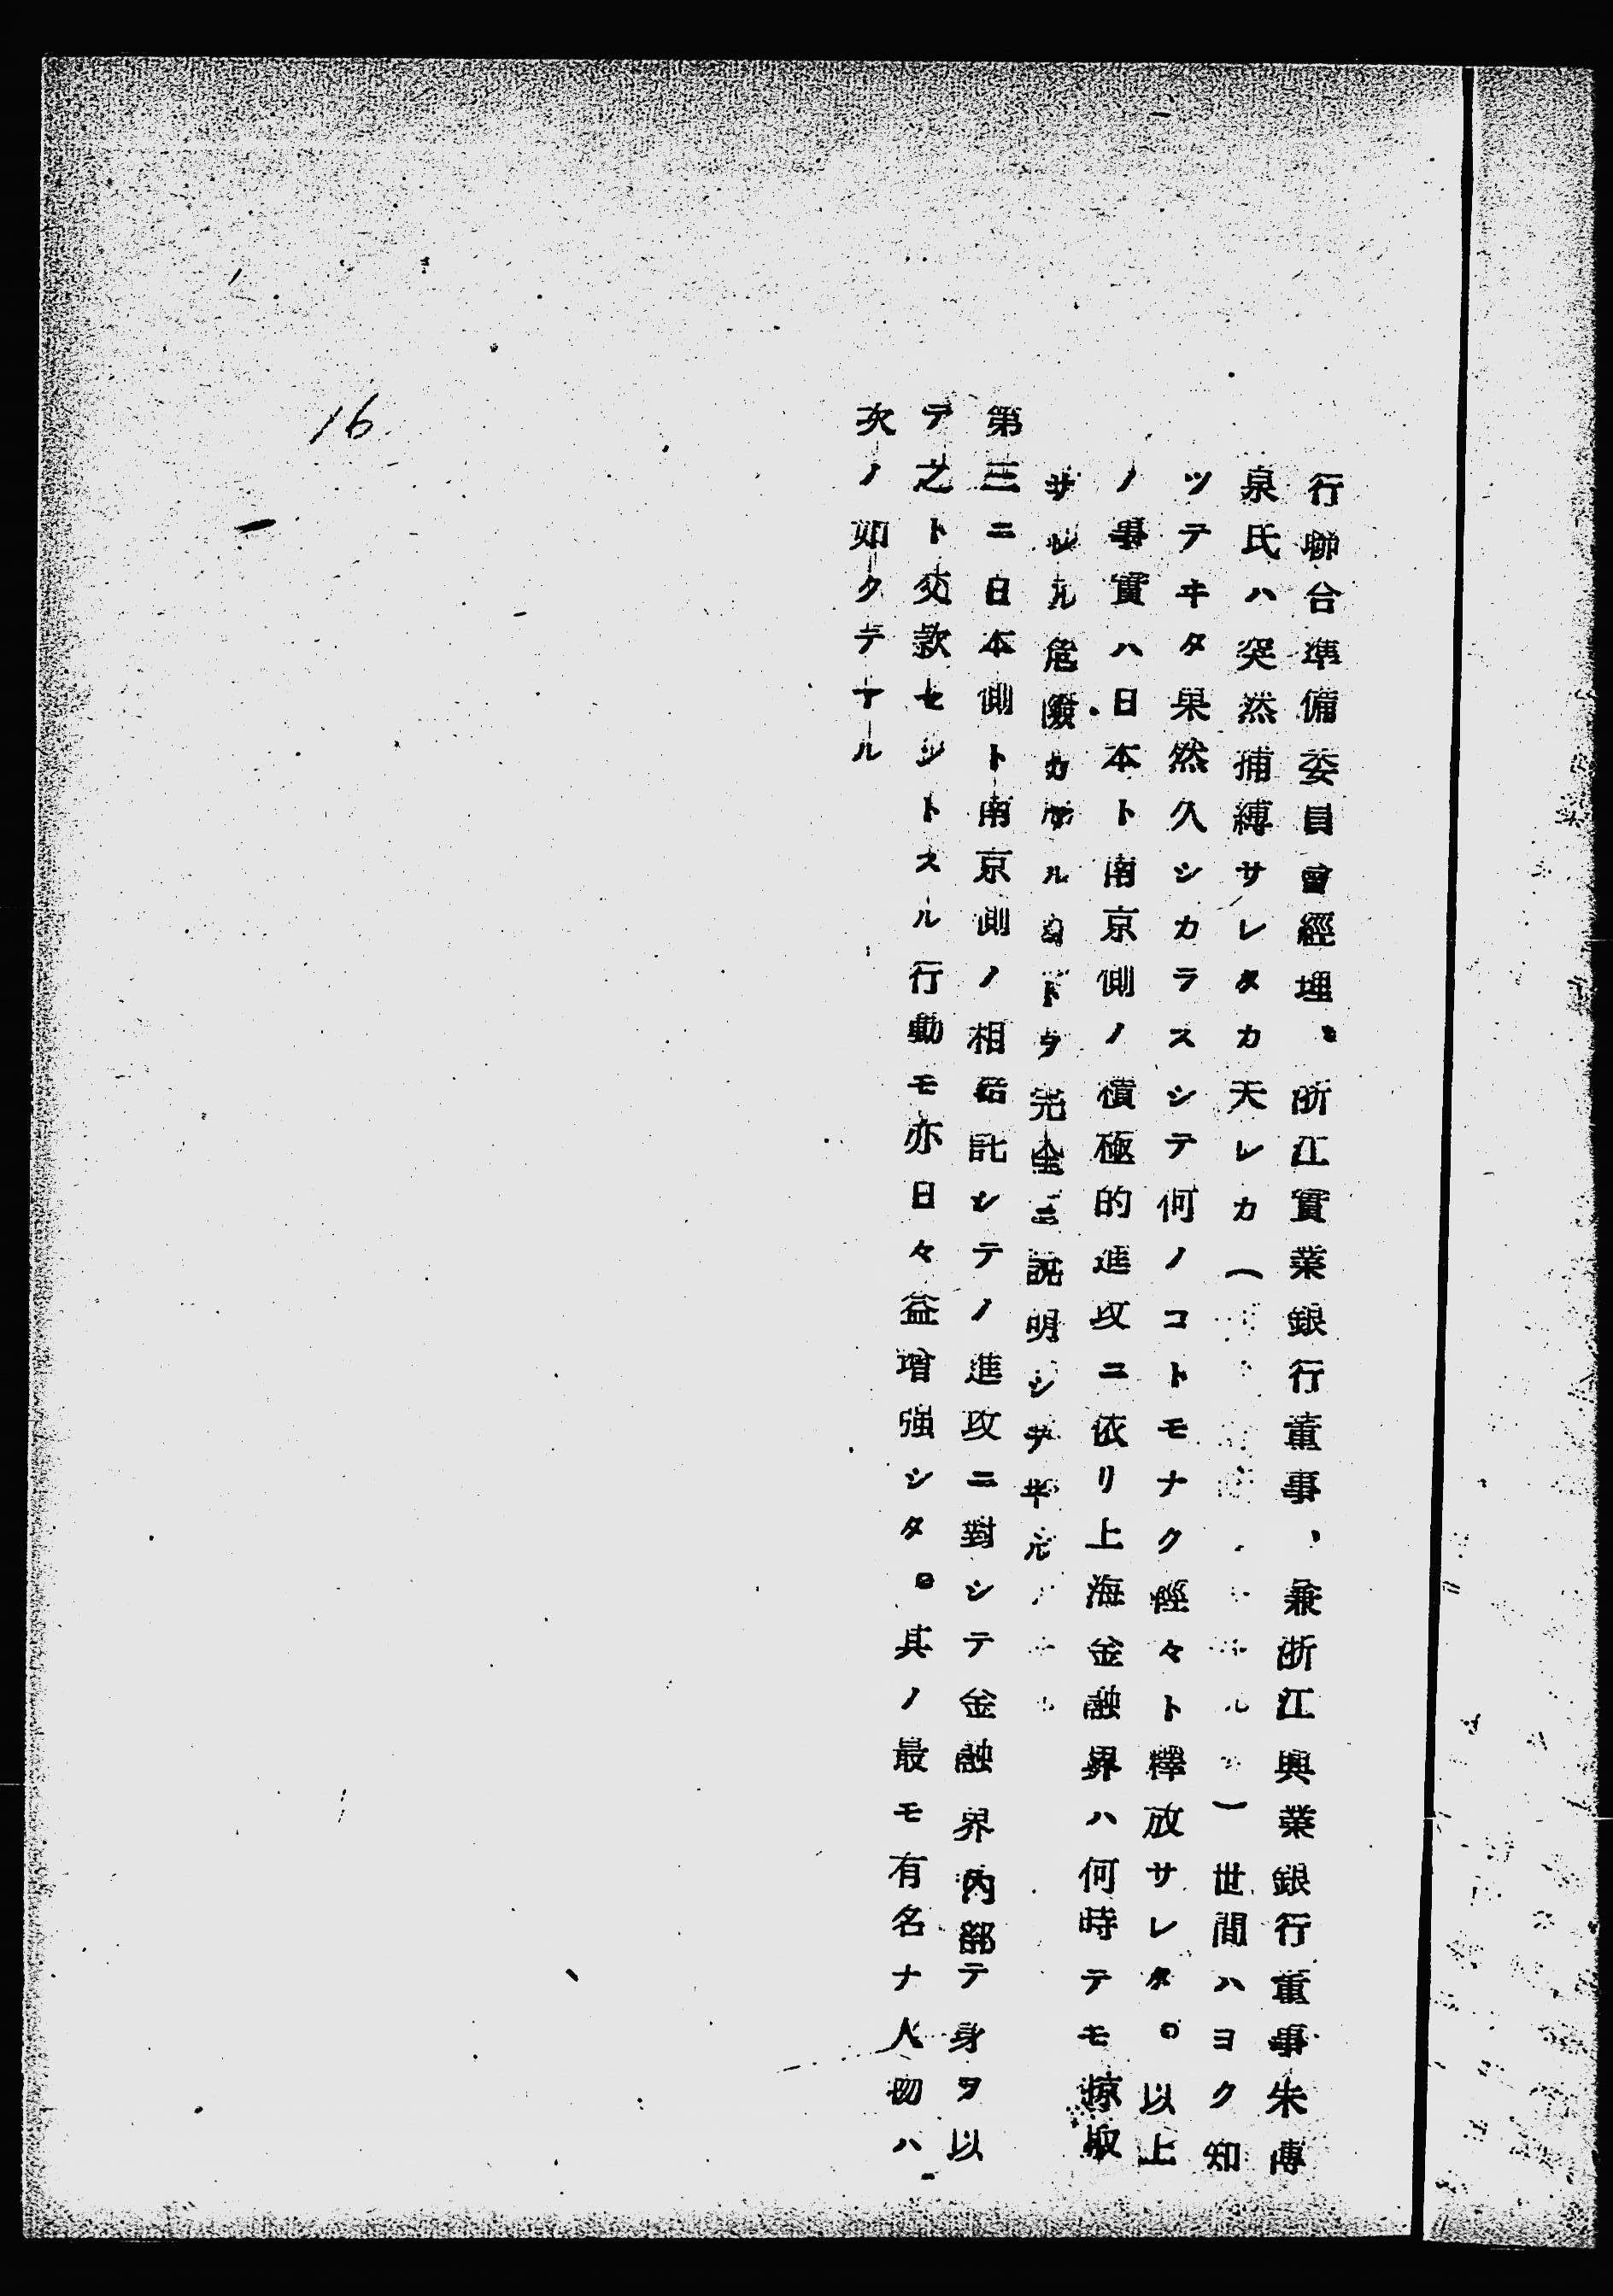 行聯合準備委員會經理、浙江實業銀行董事、兼浙江興業銀行董事朱博
泉氏ハ突然捕縛サレタカ天レカ（　　）世間ハヨク知
ツテヰタ果然久シカラスシテ何ノコトモナク輕々ト釋放サレタ。以上
ノ事實ハ日本ト南京側ノ積極的進攻ニ依リ上海金融界ハ何時テモ掠取
サレル危險カアルコトヲ完全ニ説明シテヰル
第三ニ日本側ト南京側ノ相結託シテノ進攻ニ對シテ金融界內部テ身ヲ以
テ之ト交款セントスル行動モ亦日々益增強シタ。其ノ最モ有名ナ人物ハ
次ノ如クテアル
16